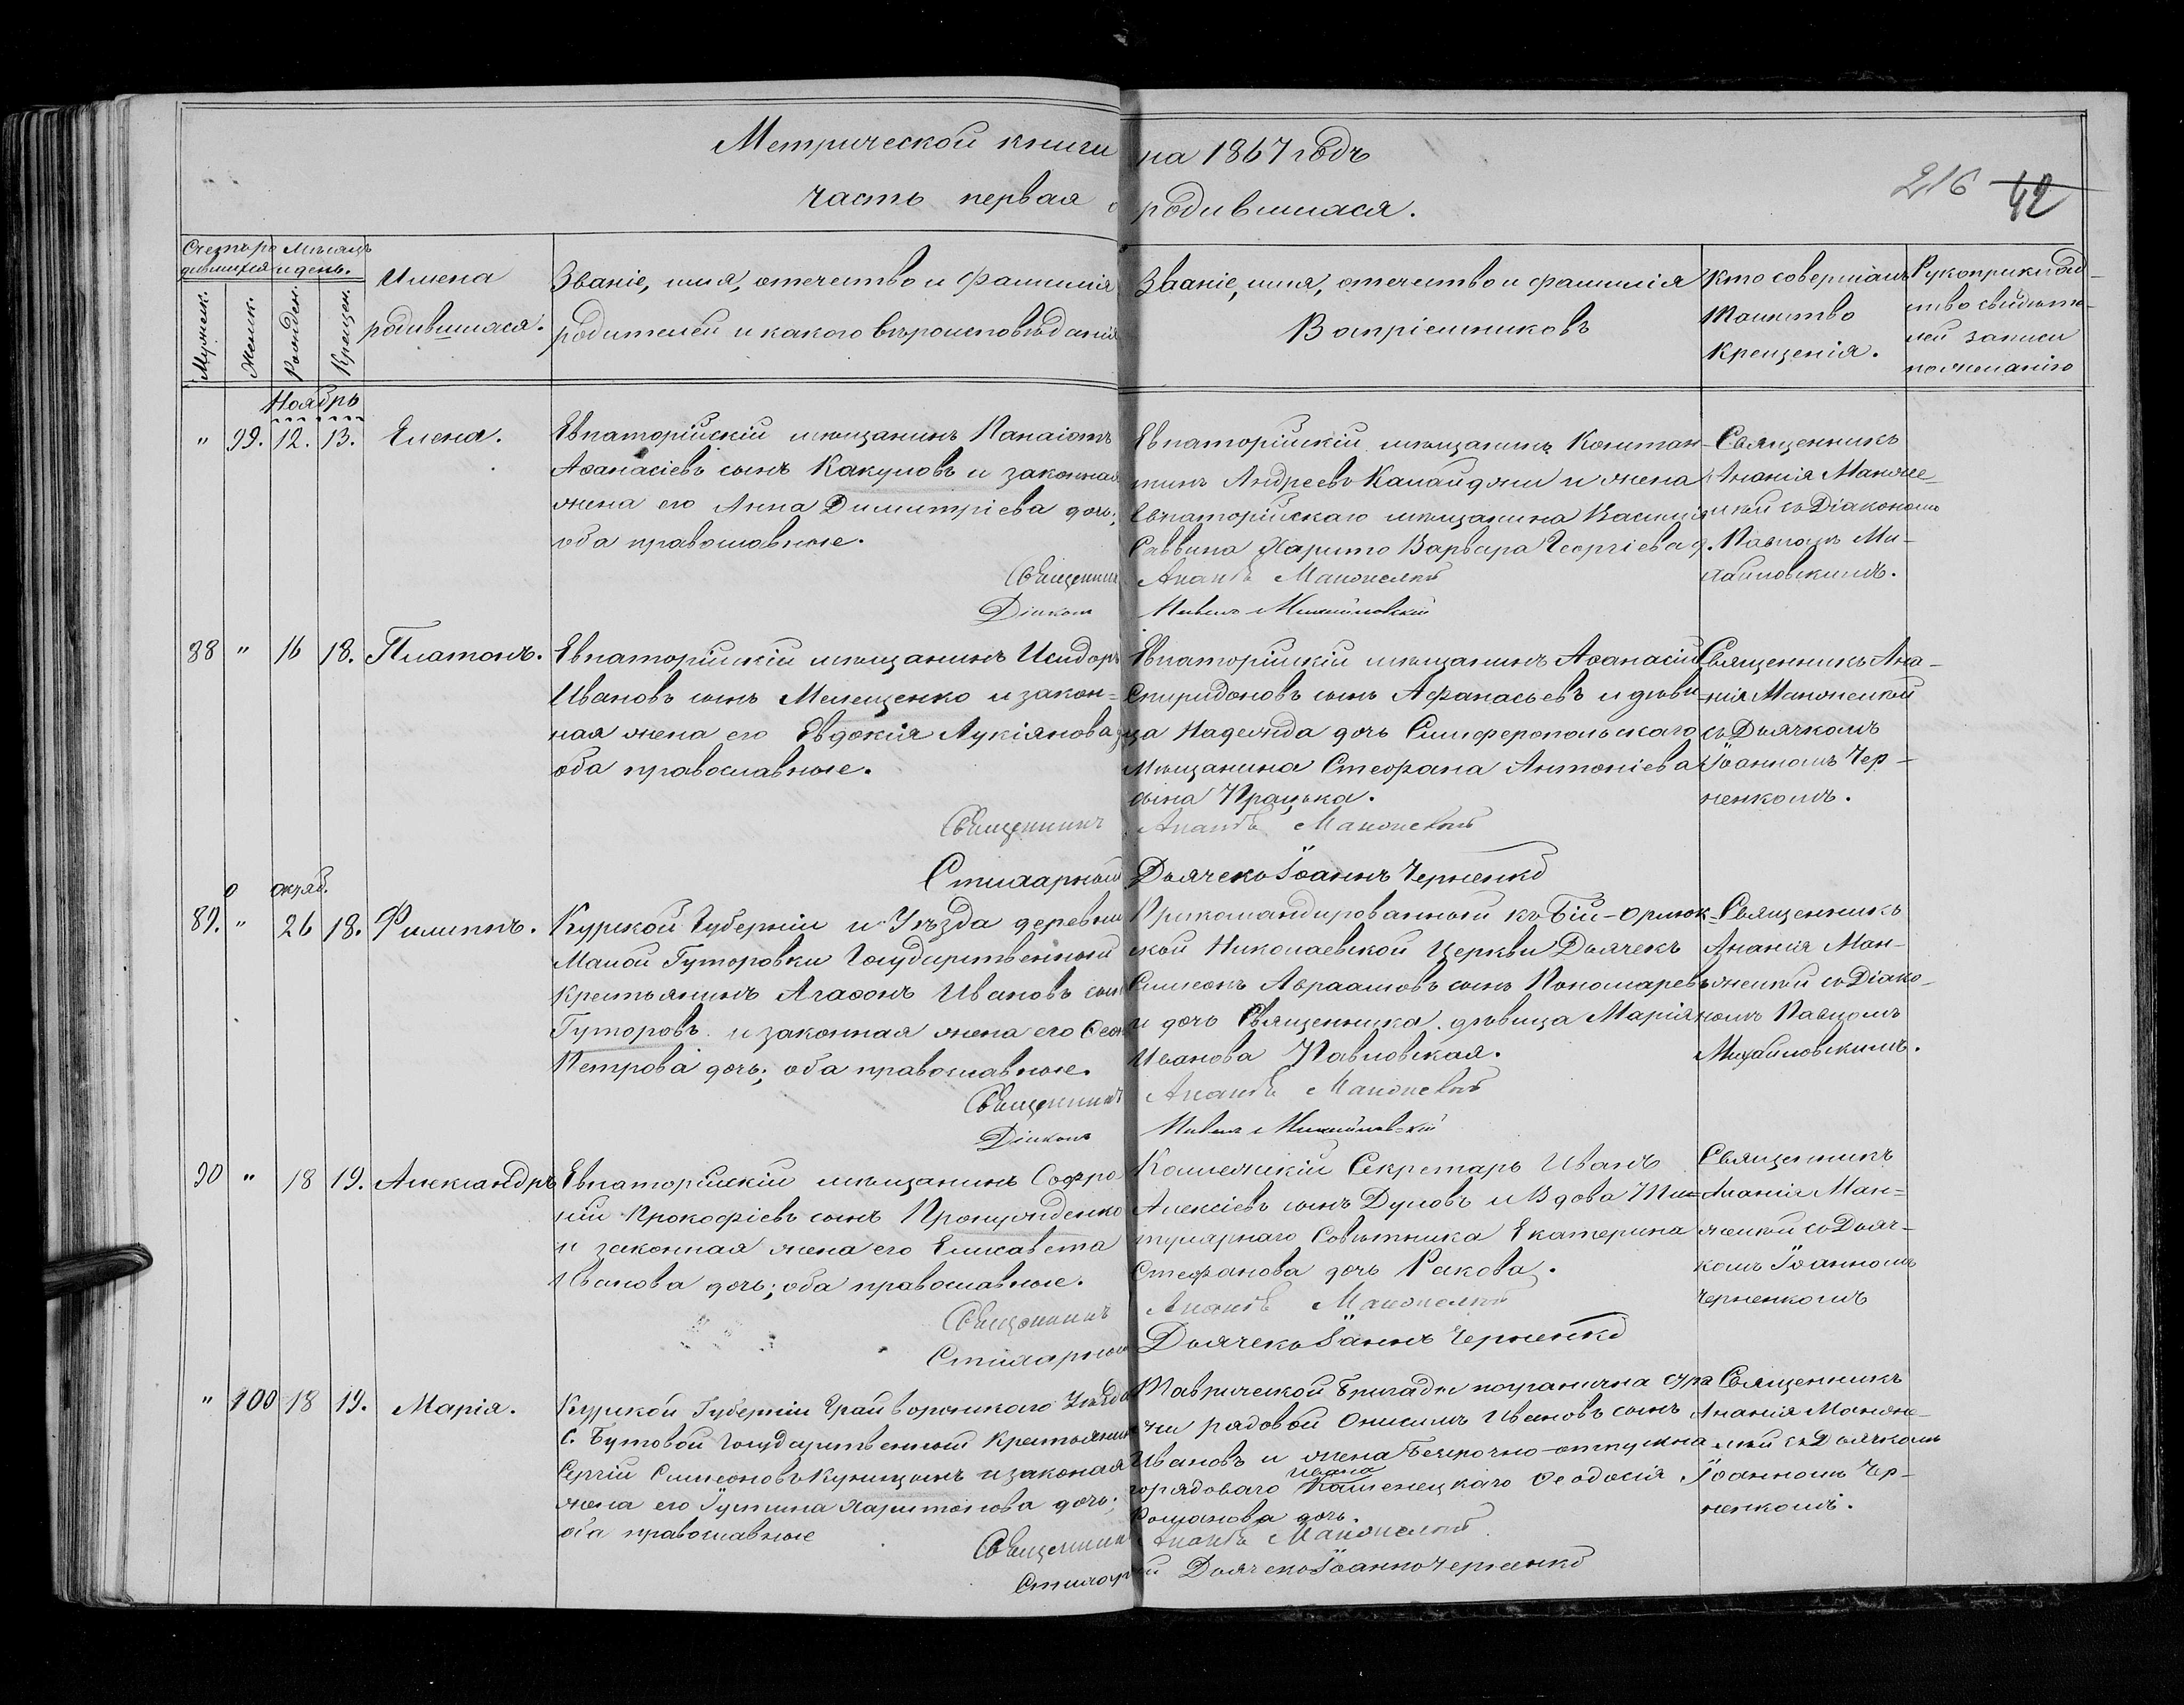 Метрической книги на 1867 годъ
часть первая о родившихся.
216 42
Счетъ родившихся
Мѣсяцъ и день.
Мужеск.
Женск.
Рожден.
Крещен.
Имена
родившихся.
Званіе, имя, отечество и фамилія
родителей и какого вѣроисповѣданія
Званіе, имя, отечество и фамилія
Воспріемниковъ
Кто совершалъ
таинство
крещенія.
Рукоприклад-
ство свидѣте-
лей записи
по желанію
Ноябрь
" 99. 12. 13. Елена.
Евпаторійскій мѣщанинъ Панаіотъ
Аѳанасіевъ сынъ Какуловъ и законная
жена его Анна Димитріева дочь;
оба православные.
Евпаторійскій мѣщанинъ Констан-
тинъ Андреевъ Калайджи и жена
Евпаторійскаго мѣщанина Василія
Саввина Харито Варвара Георгіева д.
Священникъ
Ананія Манже-
лей съ Діакономъ
Павломъ Ми-
хайловскимъ.
Священникъ Ананія
Діаконъ Павелъ Михайловскій
88 " 16 18. Платонъ.
Евпаторійскій мѣщанинъ Исидоръ
Ивановъ сынъ Мелещенко и закон=
ная жена его Евдокія Лукіянова д
оба православные.
Евпаторійскій мѣщанинъ Аѳанасій
Спиридоновъ сынъ Афанасьевъ и дѣви-
ца Надежда дочь Симферопольскаго
Мѣщанина Стефана Антоніева
сына Працька.
Священникъ Ана-
нія
съ Дьячкомъ
Іоанномъ Чер-
ненкомъ.
Священникъ Ананія
Стихарный Дьячекъ Іоаннъ Черненко
о октяб.
89. " 26 18. Филиппъ.
Курской Губерніи и Уѣзда деревни
Малой Гуторовки Государственный
крестьянинъ Агаѳонъ Ивановъ сынъ
Гуторовъ и законная жена его
Петрова дочь; оба православные.
Прикомандированный къ Бій-Орлюк-
ской Николаевской Церкви Дьячекъ
Симеонъ Авраамовъ сынъ Пономаревъ
и дочь Священника дѣвица Марія
Иванова Павловская.
Священникъ
Ананія Ман-
желей съ Діако-
номъ Павломъ
Михайловскимъ.
Священникъ Ананія
Діаконъ Павелъ Михайловскій
90 " 18 19. Александръ
Евпаторійскій мѣщанинъ Софро
ній Прокофіевъ сынъ
и законная жена его Елисавета
Иванова дочь; оба православные.
Коллежскій Секретарь Иванъ
Алексіевъ сынъ Дуловъ и Вдова Ти-
тулярнаго Совѣтника Екатерина
Стефанова дочь Ракова.
Священникъ
Ананія Ман=
желей съ Дьяч-
комъ Іоанномъ
Черненкомъ
Священникъ Ананія
Стихарный Дьячекъ Іоаннъ Черненко
" 100 18 19. Марія.
Курской Губерніи Грайворонскаго Уѣзда
с. Бутовой Государственный Крестьянинъ
Сергій Симеоновъ Куницынъ и законая
жена его Іустина Харитонова дочь;
оба православные
Таврической бригады погранична стра
жи рядовой Онисимъ Ивановъ сынъ
Ивановъ и жена Безсрочно-отпускна
го рядоваго Ивана Каменецкаго Ѳеодосія
Романова дочь.
Священникъ
Ананія Манже-
лей съ Дьячкомъ
Іоанномъ Чер-
ненкомъ.
Священникъ Ананія
Стихарный Дьячекъ Іоаннъ Черненко